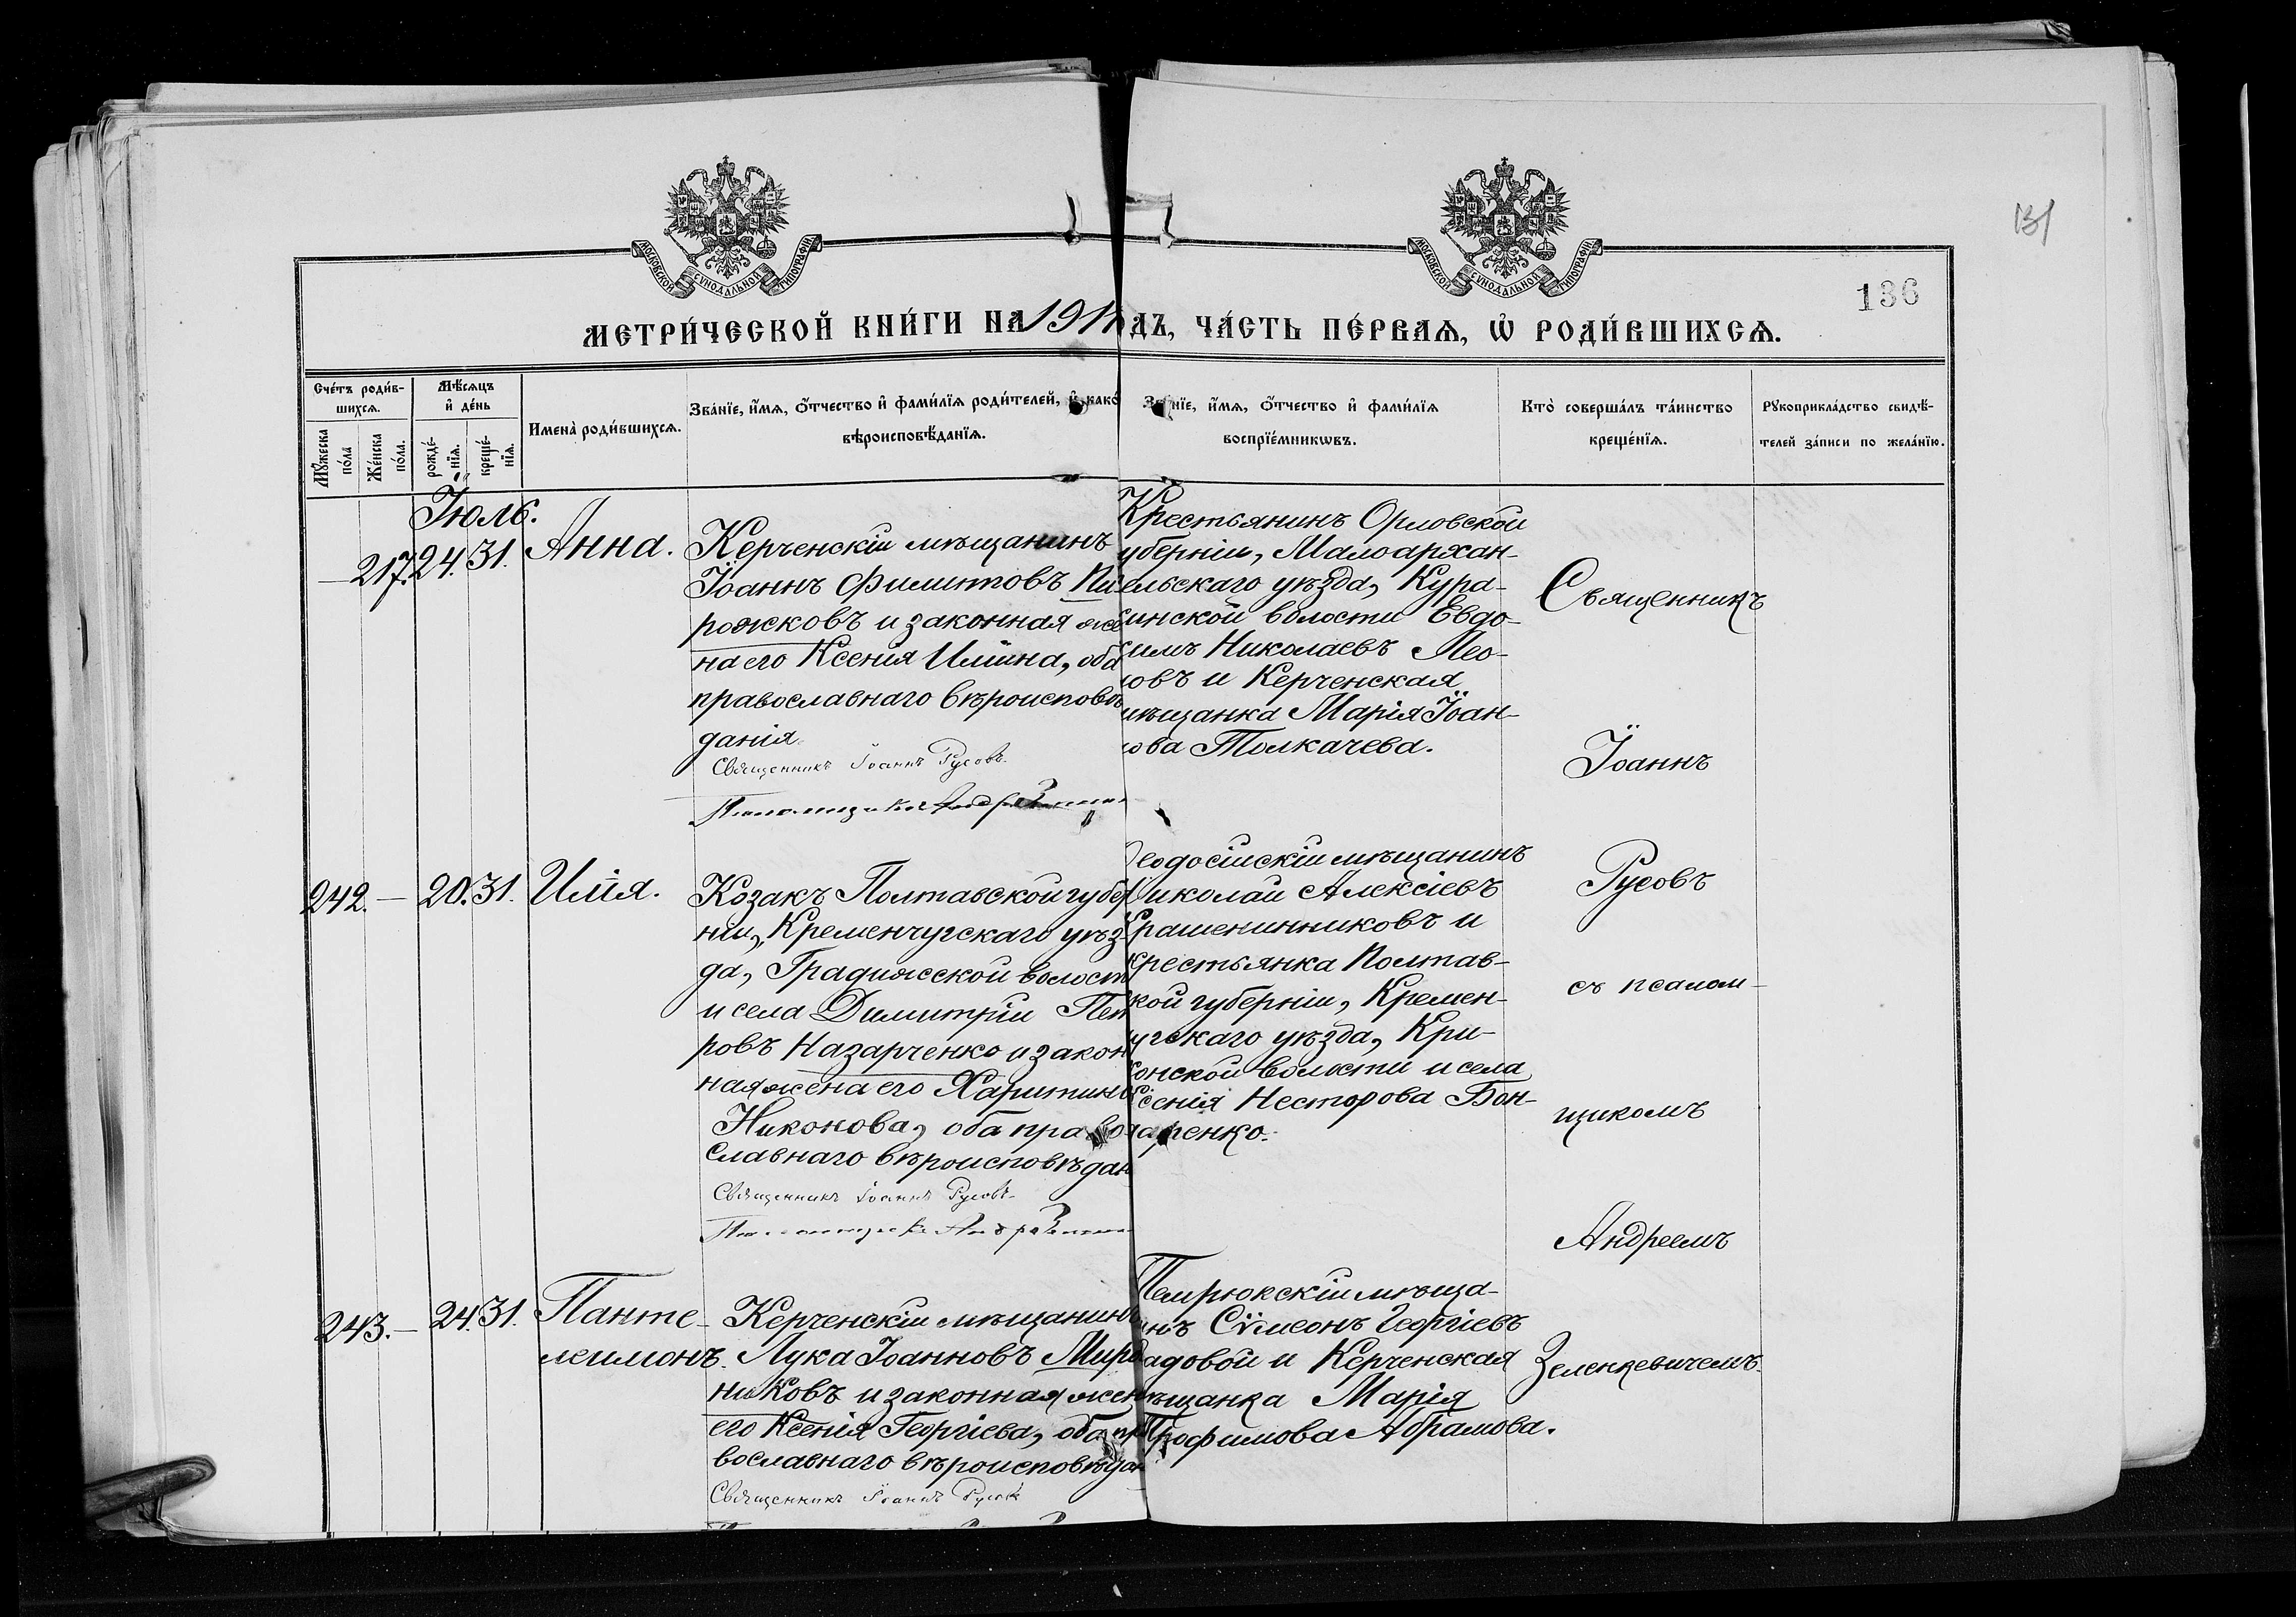 131
136
МОСКОВСКОЙ СѴНОДАЛЬНОЙ ТИПОГРАФІИ
МОСКОВСКОЙ СѴНОДАЛЬНОЙ ТИПОГРАФІИ
МЕТРИ́ЧЕСКОЙ КНИ́ГИ НА 191 ДЪ, ЧА́СТЬ ПЕ́РВАѦ, Ѽ РОДИ́ВШИХСѦ.
Сче́тъ роди́в-
шихсѧ.
Мѣ́сѧцъ
и҆ де́нь
Мꙋ́жеска
по́ла
Же́нска
по́ла.
рожде́-
нїѧ.
креще́-
нїѧ.
Имена̀ роди́вшихсѧ.
Зва́нїе, и҆́мѧ, ѻ҆́тчество и҆ фами́лїѧ роди́телей, и҆ како́
вѣроисповѣ́данїѧ.
нїе, и҆́мѧ, ѻ҆́тчество и҆ фами́лїѧ
воспрїе́мникѡвъ.
Кто̀ соверша́лъ та́инство
креще́нїѧ.
Рꙋкоприкла́дство свидѣ́-
телей за́писи по жела́нїю.
Іюль.
217. 24. 31. Анна.
Керченскій мѣщанинъ
Іоаннъ Филиптовъ Пи
рожковъ и законная же
на его Ксенія Иліина, оба
православнаго вѣроисповѣ
данія.
Священникъ Іоаннъ Русовъ.
Крестьянинъ Орловской
уберніи, Малоархан-
ельскаго уѣзда, Кура-
инской волости Евдо-
имъ Николаевъ Лео-
овъ и Керченская
мѣщанка Марія Іоан-
ова Толкачева.
242. — 20. 31. Илія.
Козакъ Полтавской губер
ніи, Кременчугскаго уѣз-
да, Градижсской волост
и села Димитрій Пет
ровъ Назарченко и закон
ная жена его Харитин
Никонова, оба право
славнаго вѣроисповѣдан
Священникъ Іоаннъ Русовъ.
еодосійскій мѣщанинъ
Николай Алексіевъ
Крашенинниковъ и
крестьянка Полтав-
кой губерніи, Кремен-
угскаго уѣзда, Кри-
онской волости и села
Ксенія Несторова Бон-
даренко.
243. — 24. 31. Панте-
леимонъ.
Керченскій мѣщанинъ
Лука Іоанновъ Миро
никовъ и законная жен
его Ксенія Георгіева, оба пра
вославнаго вѣроисповѣдан
Священникъ Іоаннъ Русовъ
Темрюкскій мѣща-
инъ Сѵмеонъ Георгіевъ
адовой и Керченская
мѣщанка Марія
Трофимова Абрамова.
Священникъ
Іоаннъ
Русовъ
съ псалом-
щикомъ
Андреемъ
Зеленкевичемъ.